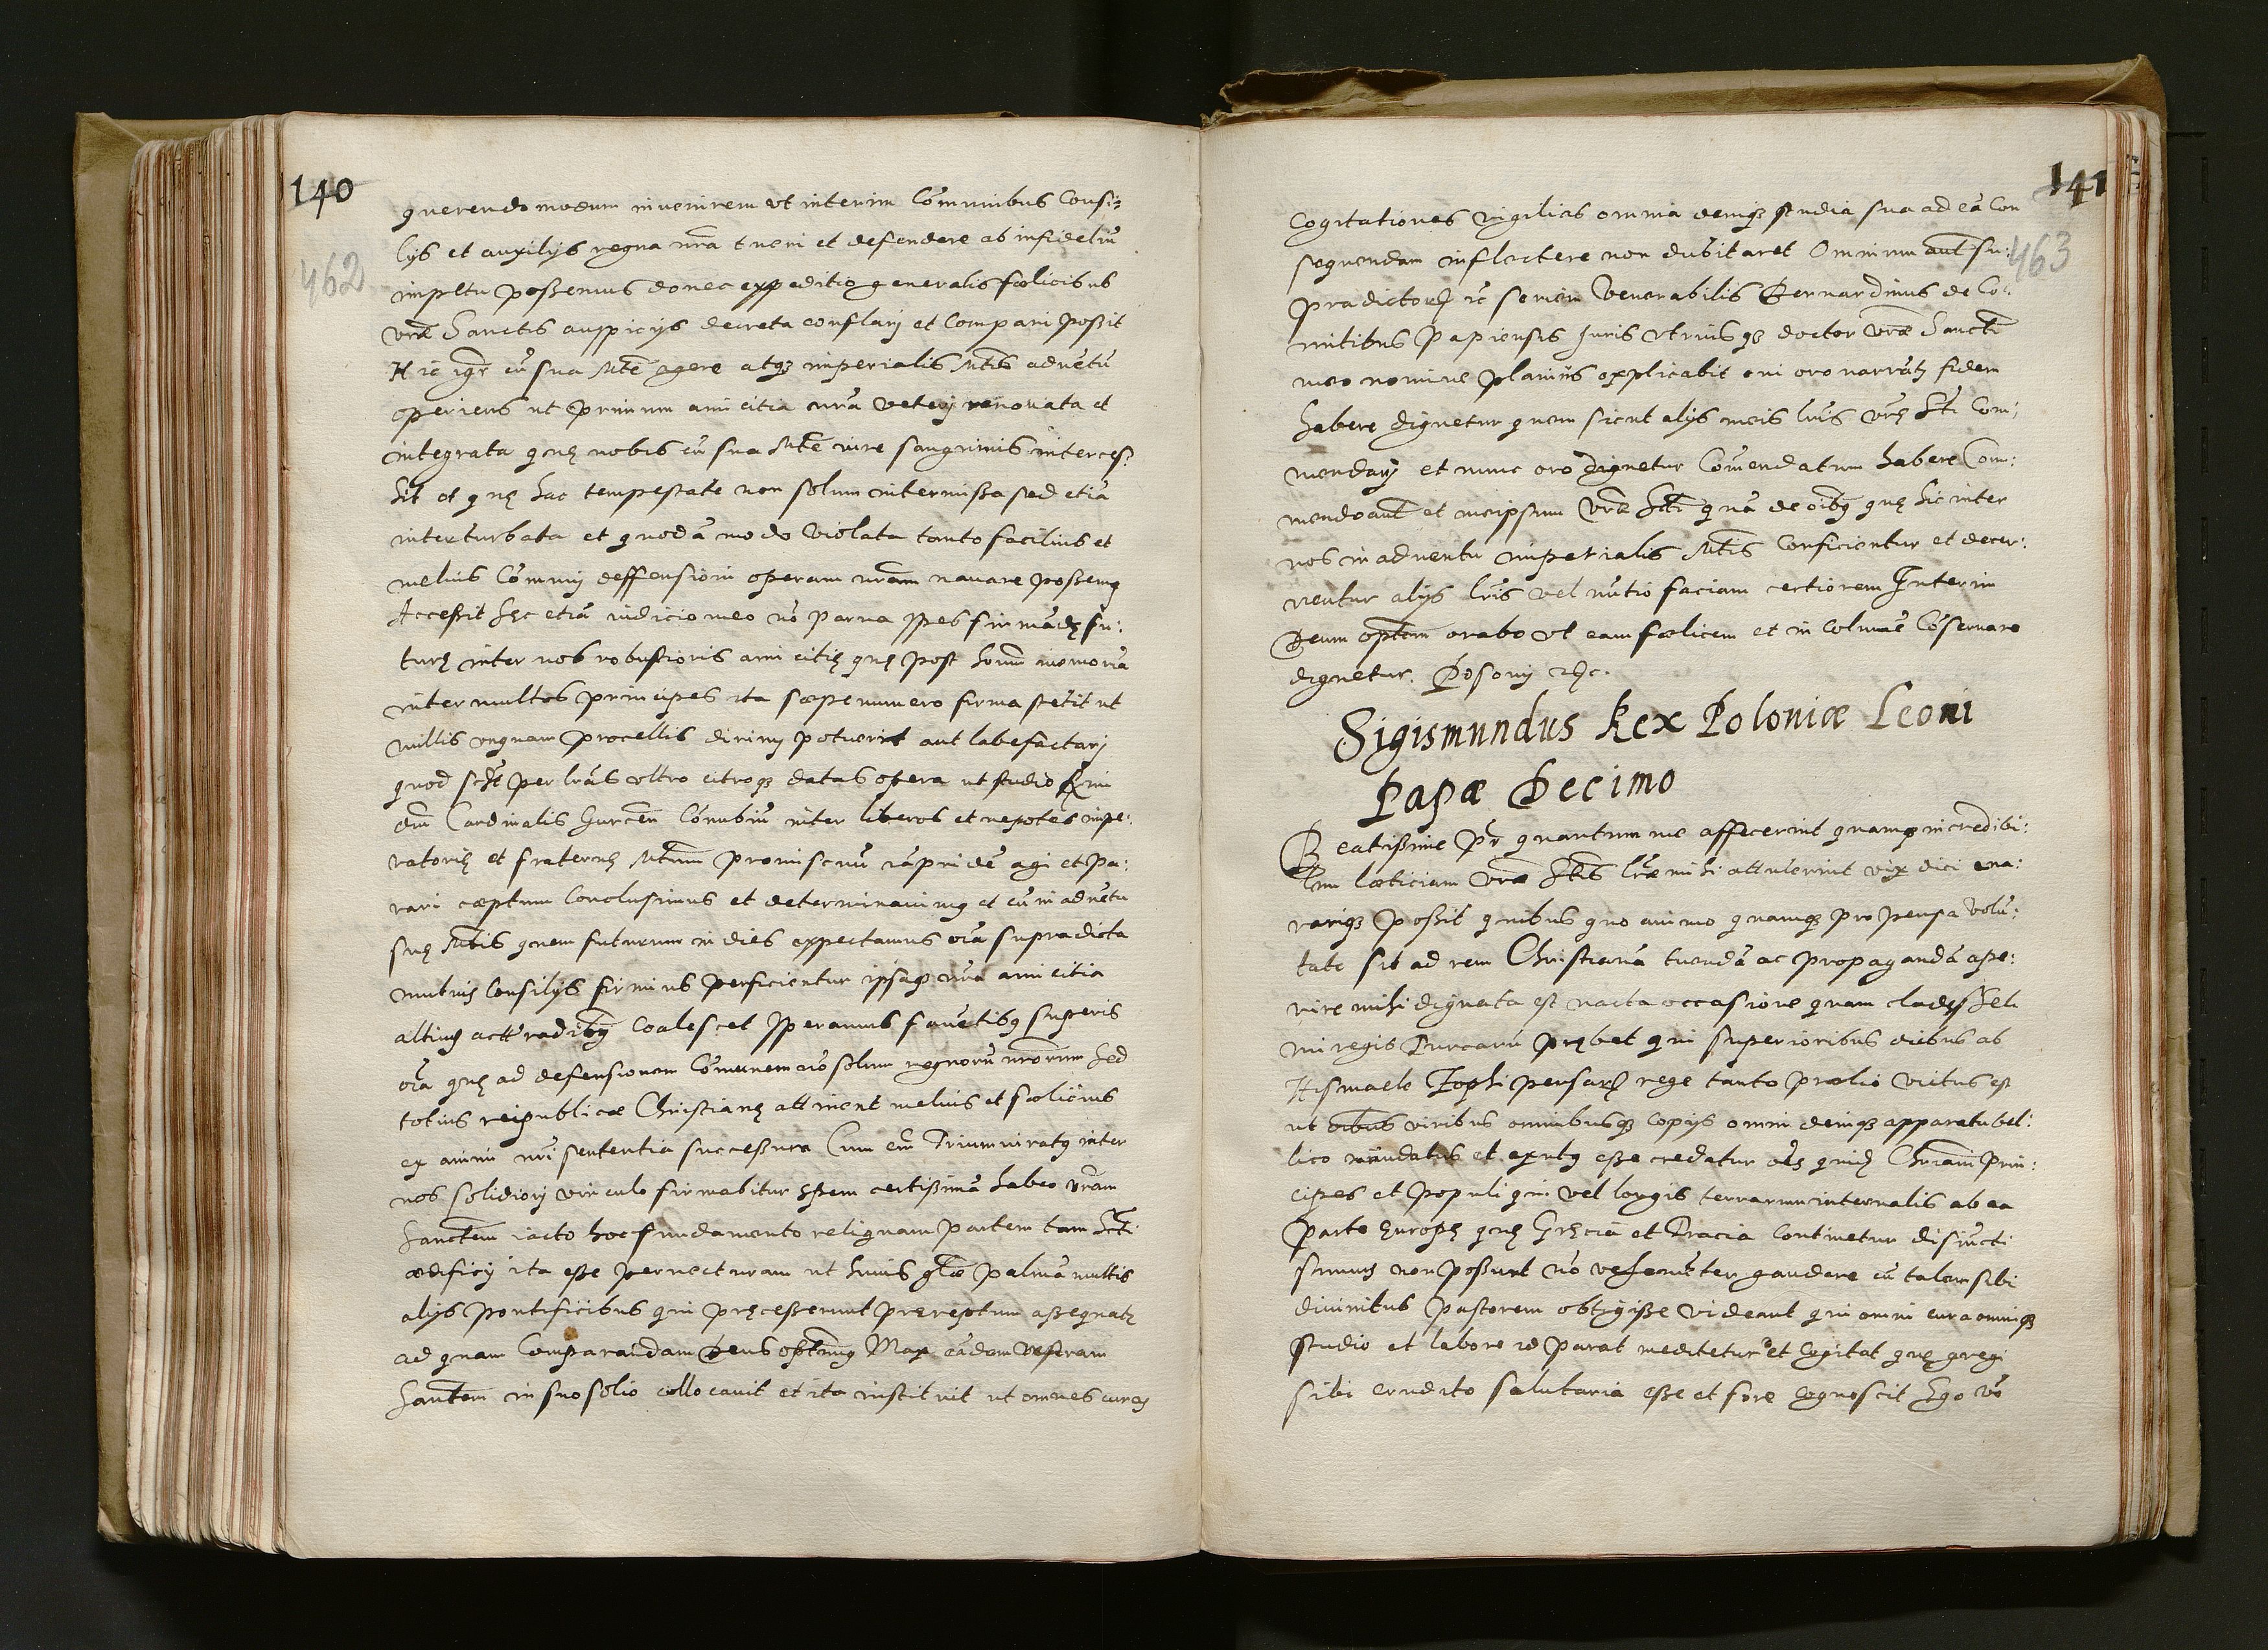 140
462
querendo modum invenirem vt interim Cómunibus Consi:
lÿs et auxilÿs regna nrã tueri et defendere ab infideliũ
impetu possemus donec expeditio generalis fœlicibus
vræ Sanctis auspicÿs decreta conflarj et Comparj possit
Hic igr cũ sua Mte agere atqȝ imperialis Mtis aduẽtũ
operiens ut primum amicitia nrã veterj renouata et
integrata quę nobis cũ sua Mte iure sanguinis interces:
sit et quę hac tempestate non solum intermissa sed etiã
interturbata et quodã modo violata tanto facilius et
melius Cómunj deffensioni operam nram nauare possemꝰ
Accessit hęc etiã iudicio meo nõ parua spes firmãdę fu:
turę inter nos robustioris amicitię quę post homĩ memoria
inter multos principes ita sæpenumero firma stetit ut
nullis vnquam procellis dirimj potuerit aut labefactarj
quod sc̃t per lrãs vltro citroqȝ datas opera ut studio Rmi
dni Cardinalis Gurcen̄ Cónubiũ inter liberos et nepotes impe:
ratorię et fraternę Mtum promiscuũ iãpridẽ agi et pa:
rari cæptum Conclusimus et determinauimꝰ et cũ in aduẽtu
suę Mtis quem futurum in dies expectamus oĩa supradicta
mutuis Consilÿs firmius perficientur ipsaqȝ nrã amicitia
altius actis radicibꝰ Coalescet speramus fauẽtibꝰ superis
oĩa quę ad defensionem Cómunem nõ solum regnorũ nrorum sed
totius reipublicæ Christianę attinent melius et fœlicius
ex animi nri sententia successura Cum em̃ Triumuiratꝰ inter
nos solidiorj vinculo firmabitur spem certissimã habeo vram
Sanctem iacto hoc fundamento reliquam partem tam Scti
ædificÿ ita esse peruecturam ut huius glæ palmã multis
alÿs pontificibus qui pręcesserunt pręreptum assequatȝ
ad quam Comparandam Deus optimꝰ Max eãdem vestram
Sanctem in suo solio collocauit et ita instituit ut omnes curas
141
463
Cogitationes vigilias omnia deniqȝ studia sua ad eã Con
sequendam inflectere non dubitaret Omnium aut su:
pradictoꝝ rē seriem Venerabilis Bernardinus de Co:
mitibus Papiensis Juris vtriusqȝ doctor vræ Sancti
meo nomine planius explicabit cui oro narrãtj fidem
habere dignetur quem sicut alÿs meis lris vrę Sti Com:
mendauj et nunc oro dignetur Cõmendatum habere Com:
mendo aut et meipsum Vræ Scti quã de oĩbꝰ quę hic inter
nos in aduentu imperialis Mtis Conficientur et decer:
nentur alÿs lris vel nũtio faciam certiorem Interim
Deum optem orabo vt eam fœlicem et in Columẽ Cõseruare
dignetur. Posonÿ ꝛc.
Sigismundus Rex Poloniæ Leoni
Papæ Decimo
Beatissime Pr̃ quantum me affecerint quamqȝ incredibi:
lem læticiam Vræ Stis lræ mihi attulerint vix dici ena:
rariqȝ possit quibus quo animo quamqȝ propensa volũ:
tate sit ad rem Christianã tuendã ac propagandã ape:
rire mihi dignata est nacta occasione quam clades Seli
mi regis Turcarũ prębet qui superioribus diebus ab
Hismaele Zophi persarꝝ rege tanto prælio victus est
ut oibus viribus omnibusqȝ copÿs omni deniqȝ apparatu bel:
lico nũdatus et exutꝰ esse credatur oẽs quidẽ Chriani prin:
cipes et populi qui vel longis terrarum interualis ab ea
parte Europę quę Gręcia et Tracia Continetur disiũcti
sumus non possunt nõ vehemẽter gaudere cũ talem sibi
diuinitus pastorem obtigisse videant qui omni cura omniqȝ
studio et labore id parat meditetur et Cogitat quę gregi
sibi credito salutaria esse et fore cognoscit Ego võ